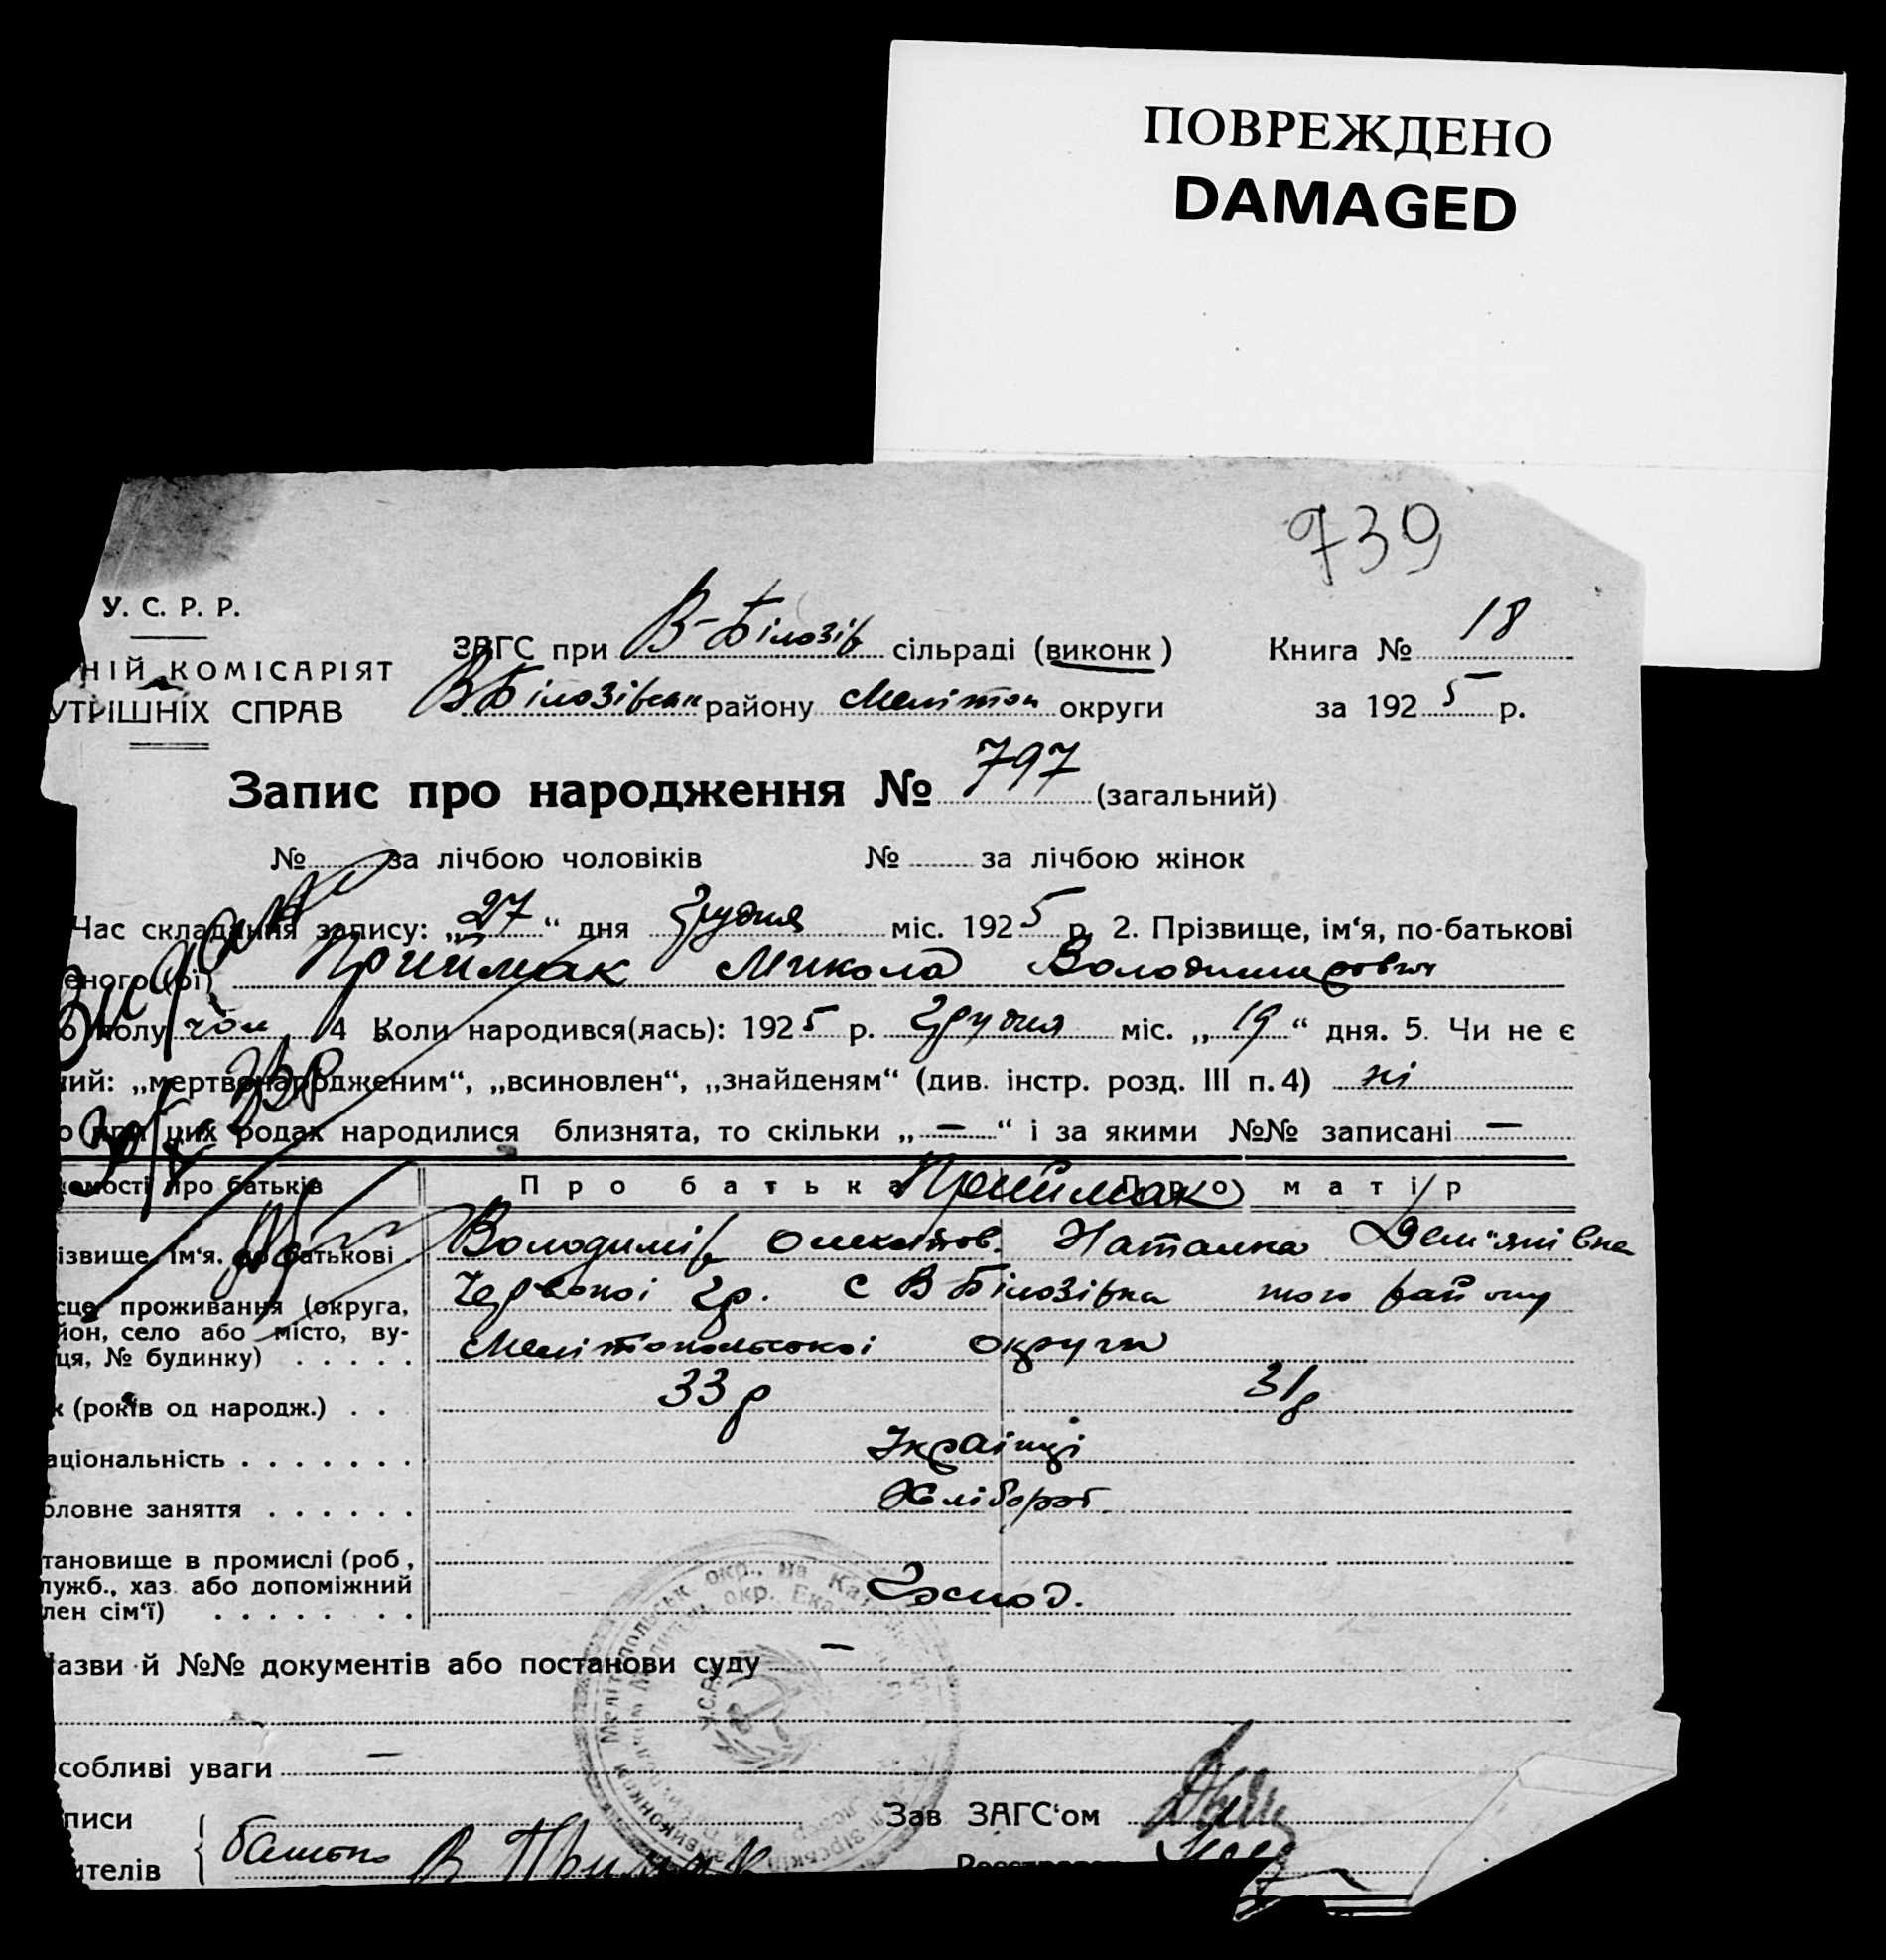 ПОВРЕЖДЕНО
DAMAGED
739
У. С. Р. Р.
НІЙ КОМІСАРІЯТ
УТРІШНІХ СПРАВ
ЗАГС при В-Білозів сільраді (виконк)
Книга № 18
ВБілозівськ району Мелітоп округи
за 1925 р.
Запис про народження № 797 (загальний)
№ за лічбою чоловіків № за лічбою жінок
Час складання запису: „27“ дня Грудня міс. 1925 р. 2. Прізвище, ім‘я, по-батькові
еного(ої) Приймак Микола Володимирович
полу чол 4 Коли народився(лась): 1925 р. Грудня міс. „19“ дня. 5. Чи не є
ний: „мертвонародженим“, „всиновлен“, „знайденям“ (див. інстр. розд. III п. 4) ні
о при цих родах народилися близнята, то скільки „—“ і за якими №№ записані —
домості про батьків Про батька Приймак Про матір
ізвище, ім‘я. по батькові Володимір Наталка Дем"янівна
сце проживання (округа, Червоної гр. с В Білозівка того району
йон, село або місто, ву-
ця, № будинку) Мелітопольської округи
к (років од народж.) 33 р 31 р
аціональність Українці
оловне заняття Хлібороб
тановище в промислі (роб,
лужб., хаз. або допоміжний Господ.
лен сім‘ї)
азви й №№ документів або постанови суду —
собливі уваги —
писи Зав ЗАГС‘ом
ителів батько В Приймак